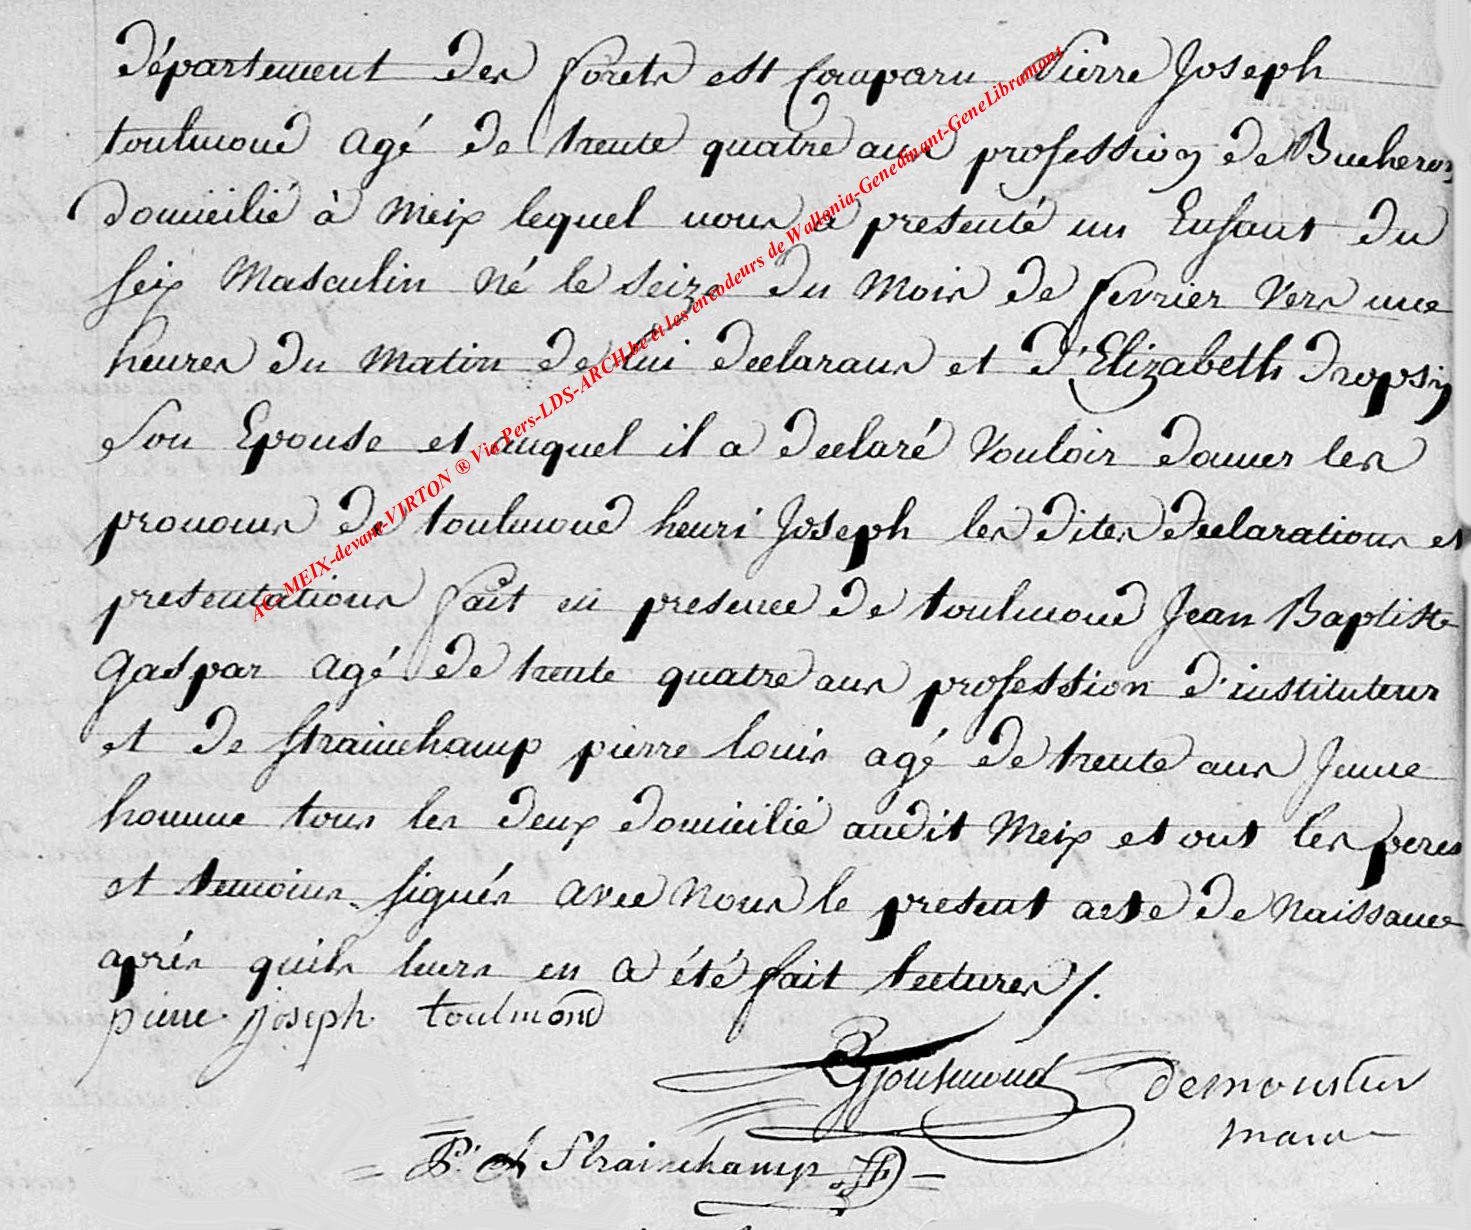 département des forets est Comparu Pierre Joseph
toulmond agé de trente quatre ans profession de Bucheron
domicilié à Meix lequel nous a presenté un Enfant du
seix Masculin né le seize du Mois de fevrier vers une
heures du matin de lui declarans et d'Elizabeth dropsy
son Epouse et auquel il a declaré vouloir donner les
pronoms de toulmond henri Joseph les dites declarations et
presentations fait en presence de toulmond Jean Baptiste
gaspar agé de trente quatre ans profession d'instituteur
et de strainchamp pierre louis agé de trente ans Jeune
homme tous les deux domicilié audit Meix et ont les peres
et temoins signés avec Nous le present acte de Naissance
aprés quils leurs en a été fait lectures /.
pierre joseph toulmond
toulmond
demoustier
maire
P. L Strainchamp
AC. MEIX-devant-VIRTON ® Via Pers-LDS-ARCH.be et les encodeurs de Wallonia-Genedinant-GeneLibramont